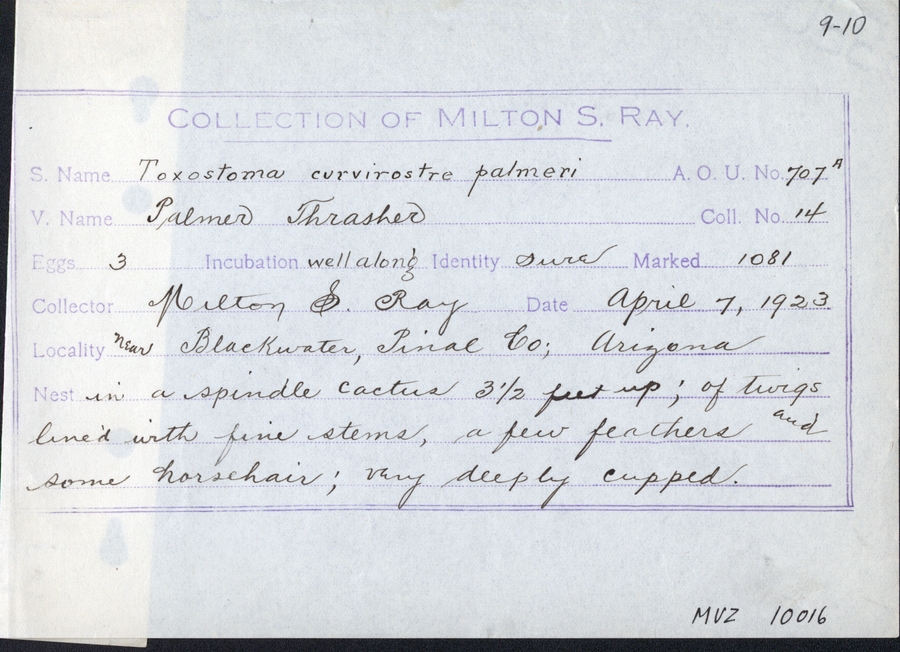 9-10
COLLECTION OF MILTON S. RAY.
S. Name Toxostoma curvirostre palmeri A. O. U. No. 707A
V. Name Palmer Thrasher Coll. No. 14
Eggs 3 Incubation well along Identity sure Marked 1081
Collector Milton S. Ray Date April 7, 1923
Locality Near Blackwater, Pinal Co; Arizona
Nest in a spindle cactus 3 1/2 feet up; of twigs
lined with fine stems, a few feathers and
some horsehair; very deeply cupped.
MVZ 10016